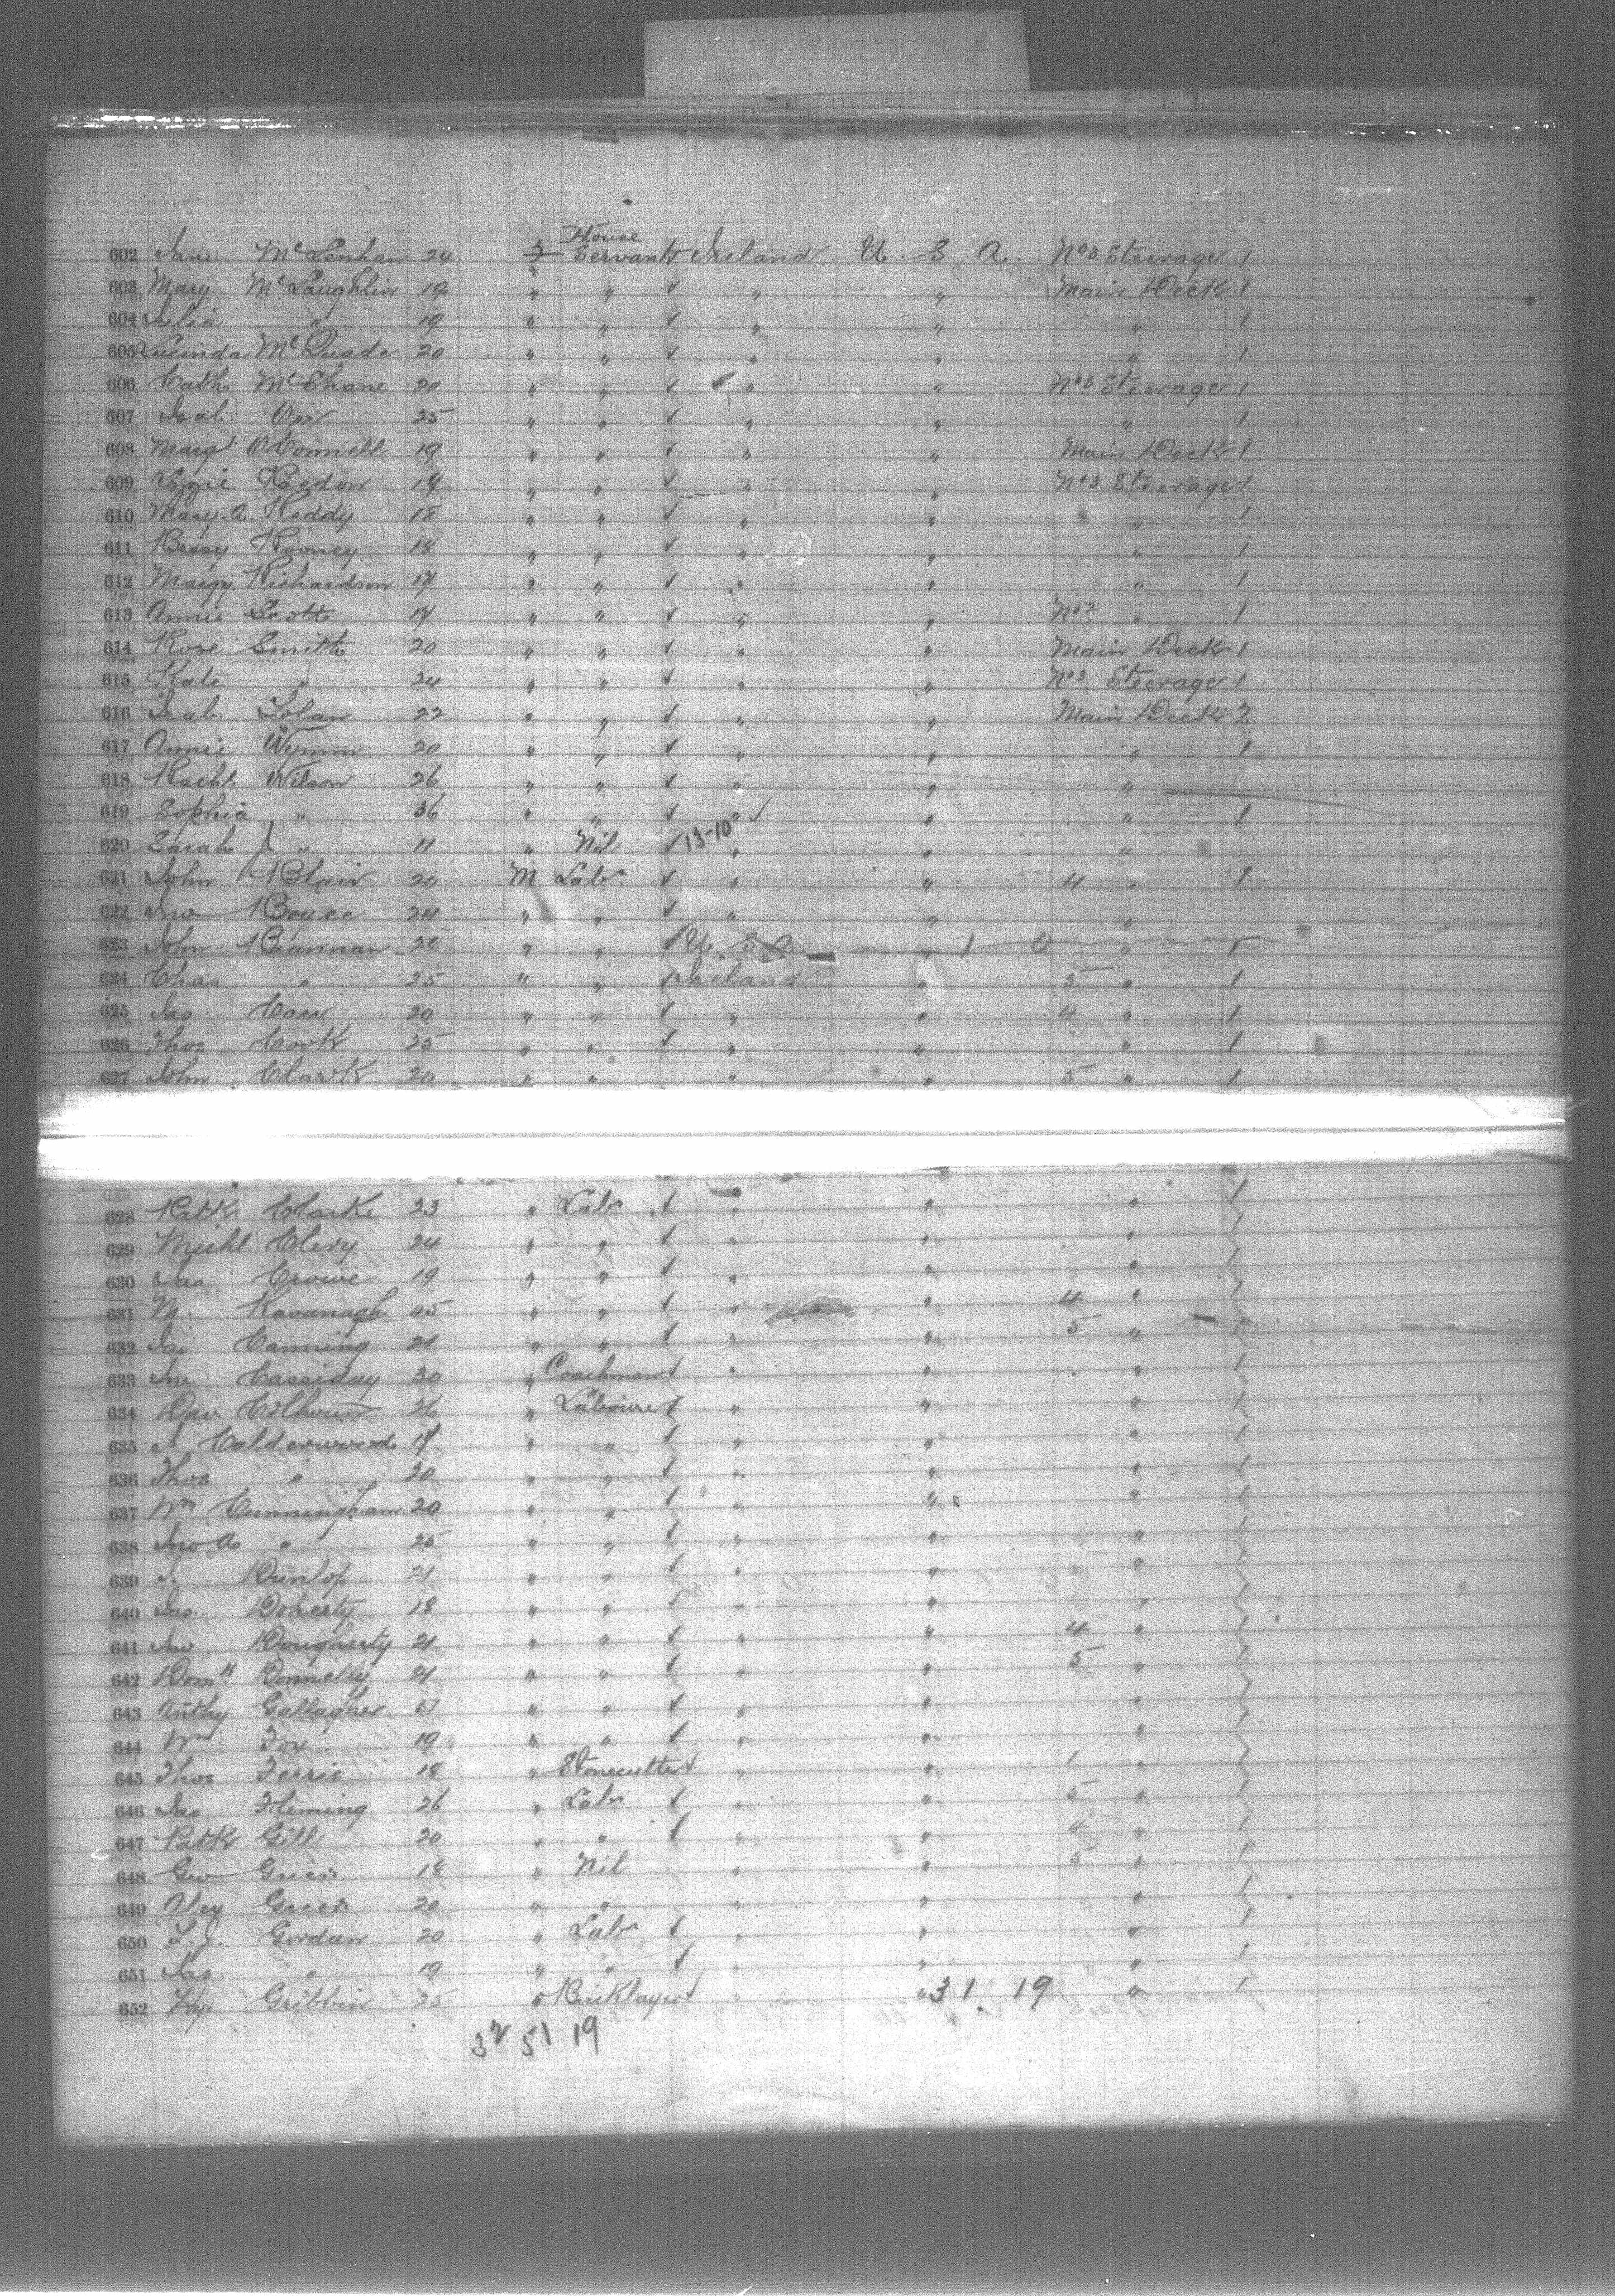 602 Jane McLenhan 24 F House Servant Ireland U. S. A. No 3 Steerage 1
603 Mary McLaughlin 19 " " " " Main Deck 1
604 " 19 " " " " " 1
605 Lucinda McQuade 20 " " " " " 1
606 Cath McShane 20 " " " " No 3 Steerage 1
607 Isab. Orr 25 " " " " " 1
608 Margt OConnell 19 " " " " Main Deck 1
609 Lizzie 19 " " " " No 3 Steerage 1
610 Mary A. 18 " " " " " 1
611 Bessy Rooney 18 " " " " " 1
612 Margy. Richardson 17 " " " " " 1
613 Annie Scott 17 " " " " No 2 " 1
614 Rose Smith 20 " " " " Main Deck 1
615 Kate " 24 " " " " No 3 Steerage 1
616 Isab. Tolan 22 " " " " Main Deck 2
617 Annie Wynn 20 " " " " " 1
618 Rachl. Wilson 26 " " " " "
619 Sophia " 36 " " " " " 1
620 Sarah " 11 " Nil 13-10 " " "
621 John Blair 20 M Labr " " 4 " 1
622 Jno Boyce 24 " " " " "
623 John Bannan 28 " " U. S. A. " " 1
624 Chas " 25 " " Ireland " 5 " 1
625 Jas Carr 20 " " " " 4 " 1
626 Thos Cook 25 " " " " " 1
627 John Clark 20 " " " " 5 " 1
628 Patk Clarke 23 " Labr " " " 1
629 Michl Clery 24 " " " " " 1
630 Jas Crowe 19 " " " " " 1
631 M. Kavanagh 45 " " " " 4 " 1
632 Jas Canning 21 " " " " 5 " 1
633 Jno Cassiday 30 " Coachman " " " 1
634 Dav. Colhoun 26 " Labourer " " " 1
635 Calderwood 17 " " " " " 1
636 Thos " 20 " " " " " 1
637 Wm Cunningham 20 " " " " " 1
638 Jno A " 25 " " " " " 1
639 Dunlop 21 " " " " " 1
640 Jas. Doherty 18 " " " " " 1
641 Jno Dougherty 21 " " " " 4 " 1
642 Domk Donnelly 21 " " " " 5 " 1
643 Anthy Gallagher " " " " " 1
644 Wm Fox 19 " " " " " 1
645 Thos Ferrie 18 " Stonecutter " " 1 " 1
646 Jas Fleming 26 " Labr " " 5 " 1
647 Patk Gill 20 " " " " 4 " 1
648 Geo Greer 18 " Nil " " 5 " 1
649 Greer 20 " " " " " 1
650 Gordan 20 " Labr " " " 1
651 Jas " 19 " " " " " 1
652 Gribbin 25 " Bricklayer " " 31. 19 " 1
32 51 19